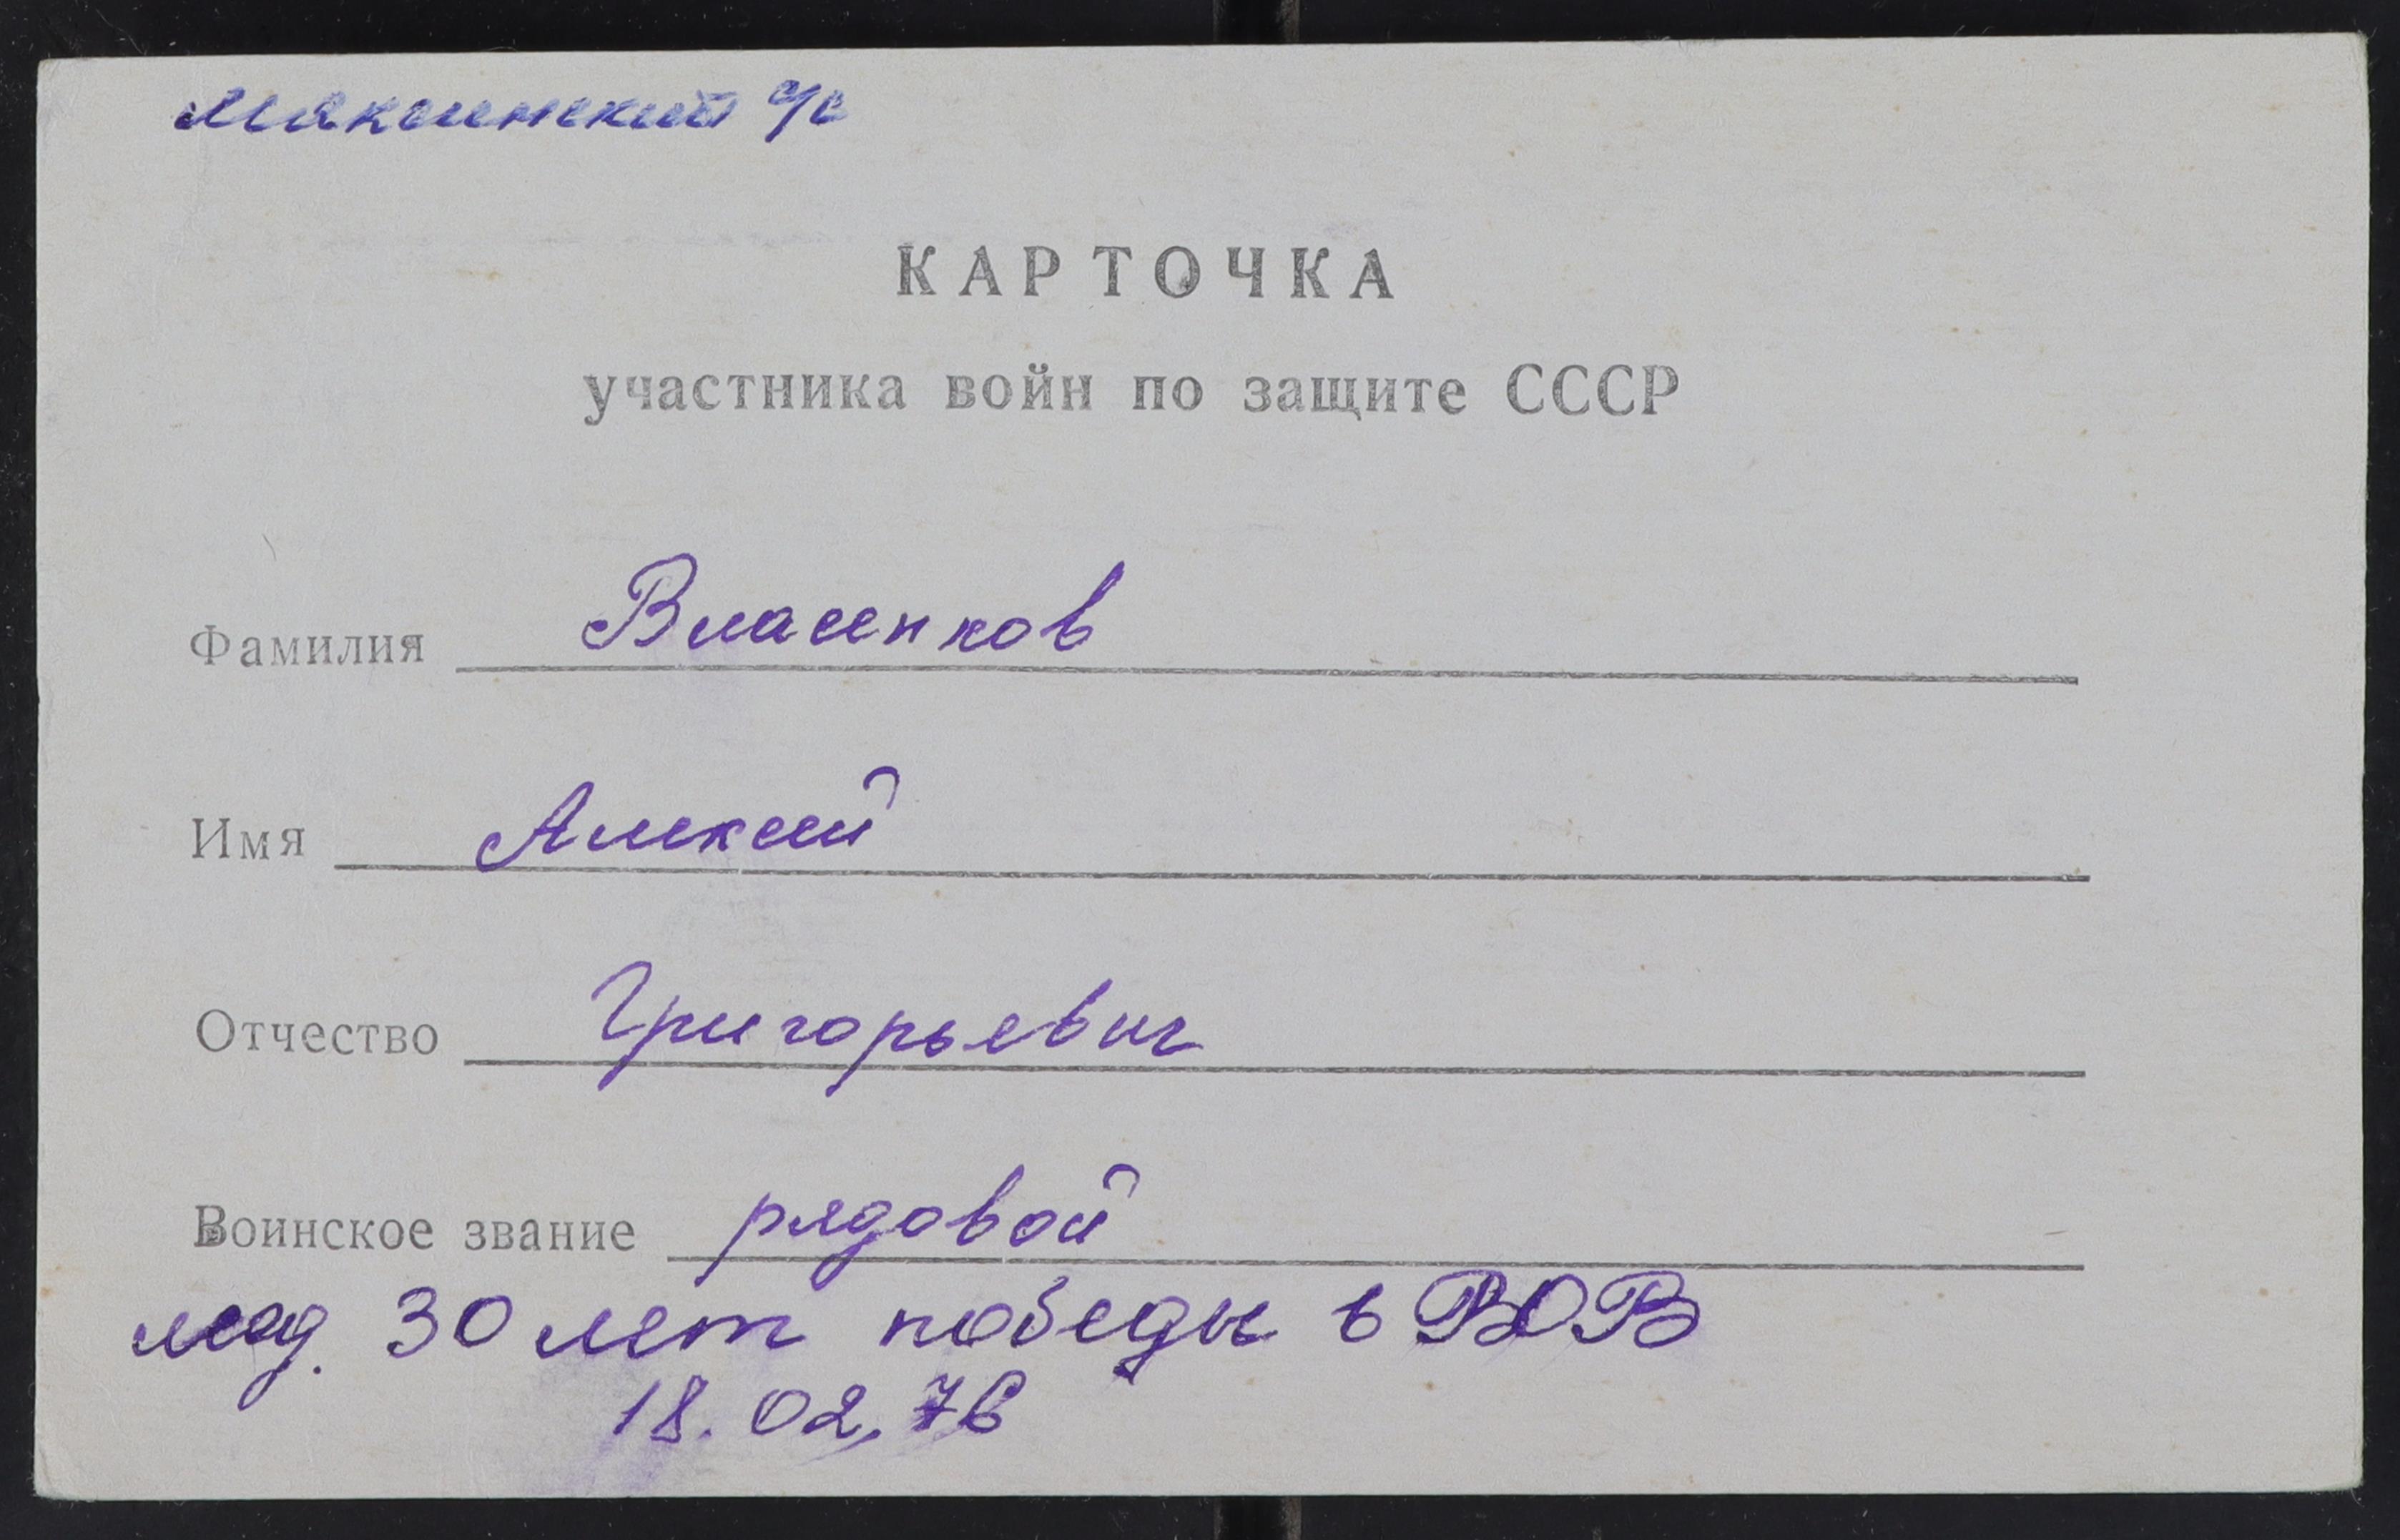 Макшинский с/с
КАРТОЧКА
участника войн по защите СССР
Фамилия Власенков
Имя Алексей
Отчество Григорьевич
Воинское звание рядовой
мед. 30 лет победы в ВОВ
18.02.76